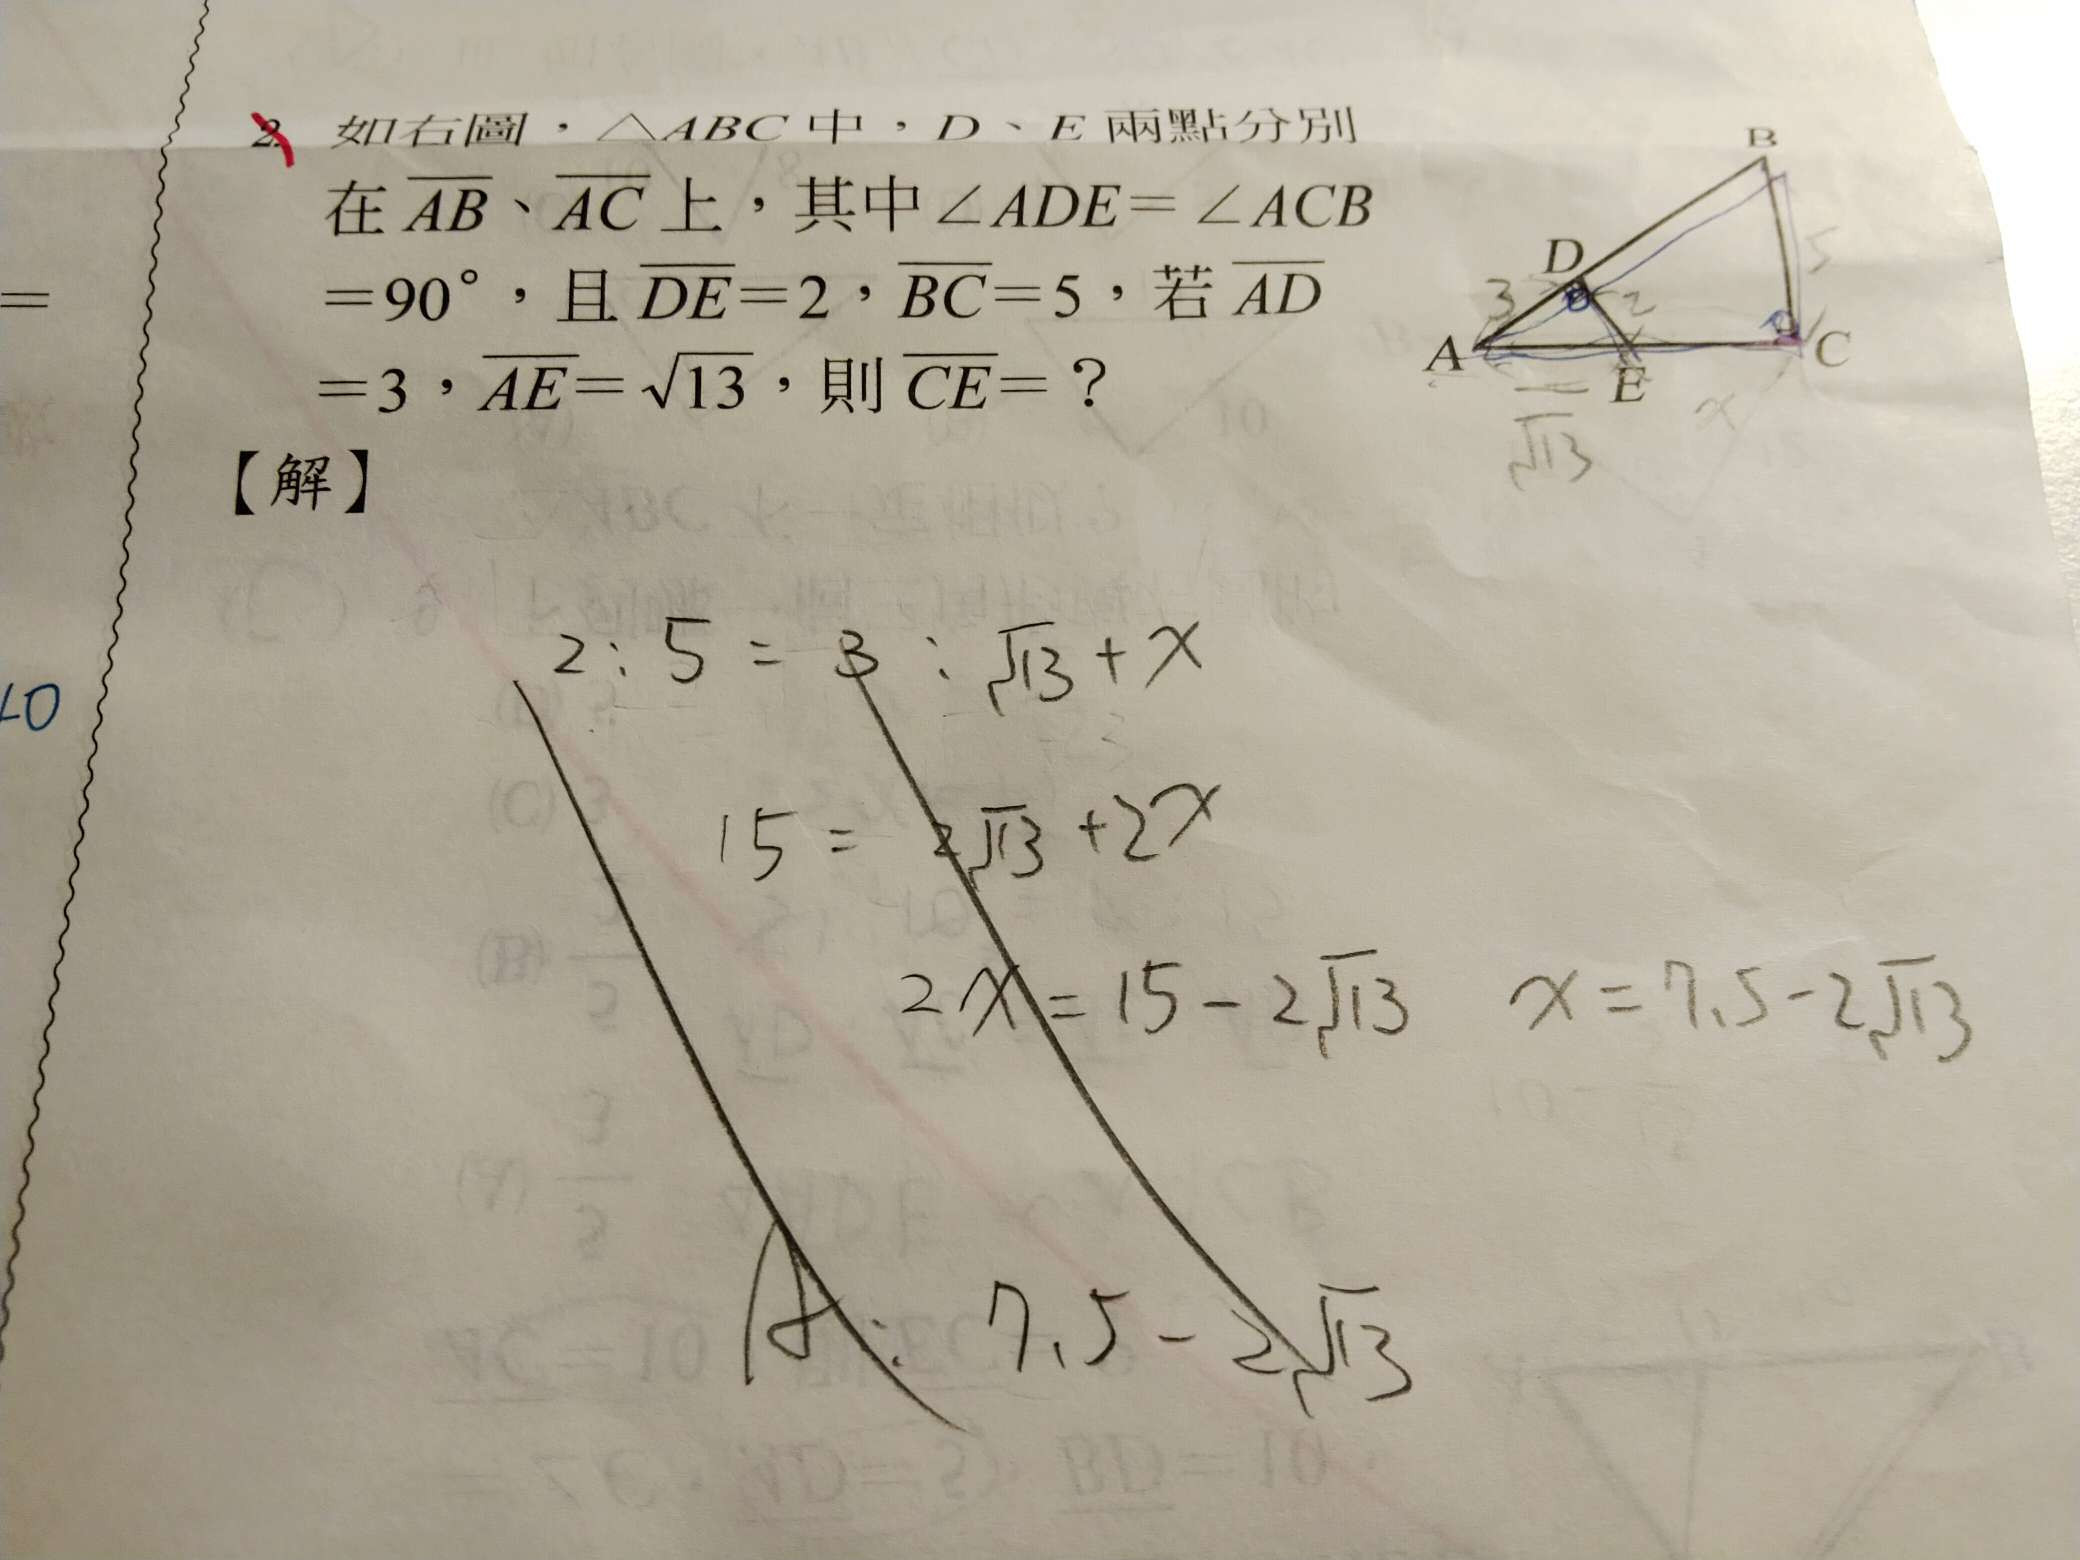 2. 如右圖，△ABC 中，D、E 兩點分別
在 AB、AC 上，其中∠ADE＝∠ACB
＝90°，且 DE＝2，BC＝5，若 AD
＝3，AE＝√13，則 CE＝？
【解】
B
D
A
E
C
3
2
5
√13
x
=
2 : 5 = 3 : √13 + x
15 = 2√13 + 2x
2x = 15 - 2√13 x = 7.5 - 2√13
A: 7.5 - 2√13